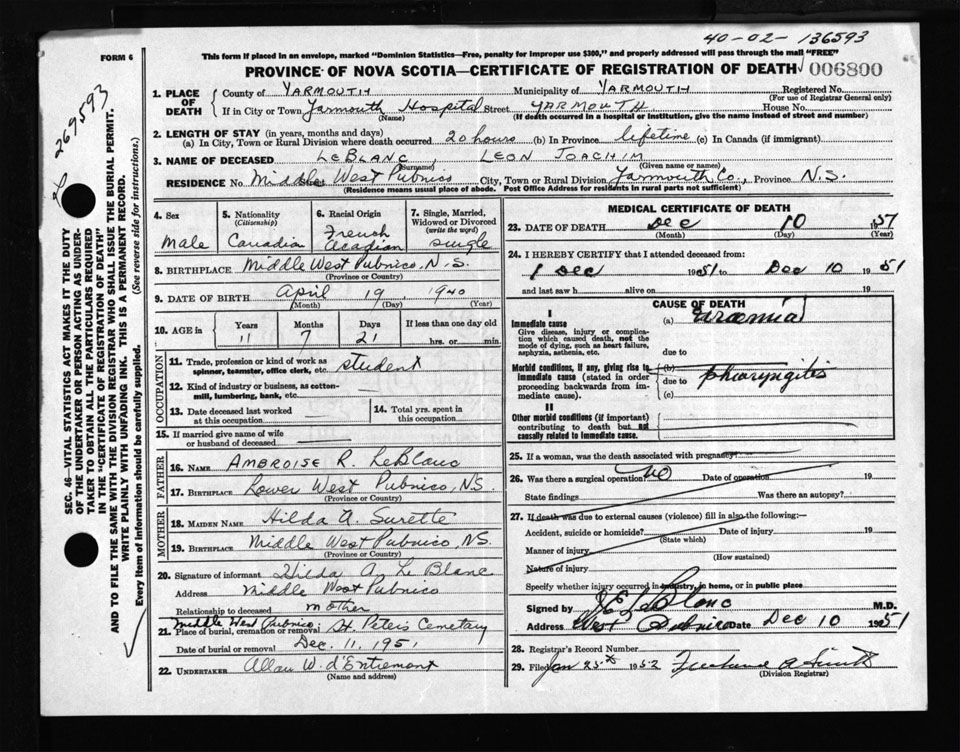 40-02-136593
This form if placed in an envelope, marked "Dominion Statistics—Free, penalty for improper use $300," and properly addressed will pass through the mail "FREE"
FORM 6
PROVINCE OF NOVA SCOTIA—CERTIFICATE OF REGISTRATION OF DEATH 006800
269593
SEC. 46—VITAL STATISTICS ACT MAKES IT THE DUTY
OF THE UNDERTAKER OR PERSON ACTING AS UNDER-
TAKER TO OBTAIN ALL THE PARTICULARS REQUIRED
IN THE "CERTIFICATE OF REGISTRATION OF DEATH"
AND TO FILE THE SAME WITH THE DIVISION REGISTRAR WHO SHALL ISSUE THE BURIAL PERMIT.
WRITE PLAINLY WITH UNFADING INK. THIS IS A PERMANENT RECORD.
Every item of information should be carefully supplied. (See reverse side for instructions.)
1. PLACE OF DEATH County of YARMOUTH Municipality of YARMOUTH Registered No.
(For use of Registrar General only)
If in City or Town Yarmouth Hospital Street YARMOUTH House No.
(Name) (If death occurred in a hospital or institution, give the name instead of street and number)
2. LENGTH OF STAY (in years, months and days)
(a) In City, Town or Rural Division where death occurred 20 hours (b) In Province lifetime (c) In Canada (if immigrant)
3. NAME OF DECEASED LEBLANC, LEON JOACHIM
(Surname) (Given name or names)
RESIDENCE No. Middle West Pubnico City, Town or Rural Division Yarmouth Co., Province N.S.
(Residence means usual place of abode. Post Office Address for residents in rural parts not sufficient)
4. Sex
Male
5. Nationality
(Citizenship)
Canadian
6. Racial Origin
French
Acadian
7. Single, Married,
Widowed or Divorced
(write the word)
single
8. BIRTHPLACE Middle West Pubnico, N.S.
(Province or Country)
9. DATE OF BIRTH April 19 1940
(Month) (Day) (Year)
10. AGE in Years Months Days If less than one day old
11 7 21 hrs. or min.
OCCUPATION
11. Trade, profession or kind of work as student
spinner, teamster, office clerk, etc.
12. Kind of industry or business, as cotton-
mill, lumbering, bank, etc.
13. Date deceased last worked
at this occupation
14. Total yrs. spent in
this occupation
15. If married give name of wife
or husband of deceased
FATHER
16. NAME AMBROISE R. LeBlanc
17. BIRTHPLACE Lower West Pubnico, N.S.
(Province or Country)
MOTHER
18. MAIDEN NAME Hilda A. Surette
19. BIRTHPLACE Middle West Pubnico, NS.
(Province or Country)
20. Signature of informant Hilda A. Le Blanc
Address Middle West Pubnico
Relationship to deceased mother
Middle West Pubnico
21. Place of burial, cremation or removal St. Peters Cemetary
Date of burial or removal Dec. 11, 1951
22. UNDERTAKER Allan W. d'Entremont
(Name and address)
MEDICAL CERTIFICATE OF DEATH
23. DATE OF DEATH Dec 10 1951
(Month) (Day) (Year)
24. I HEREBY CERTIFY that I attended deceased from:
1 Dec 1951 to Dec 10 1951
and last saw h alive on 19
CAUSE OF DEATH
I
Immediate cause (a) Uraemia
Give disease, injury or complica-
tion which caused death, not the
mode of dying, such as heart failure,
asphyxia, asthenia, etc.
due to
Morbid conditions, if any, giving rise to (b)
immediate cause (stated in order due to pharyngitis
proceeding backwards from im-
mediate cause). (c)
II
Other morbid conditions (if important)
contributing to death but not
causally related to immediate cause.
25. If a woman, was the death associated with pregnancy?
26. Was there a surgical operation? NO Date of operation 19
State findings Was there an autopsy?
27. If death was due to external causes (violence) fill in also the following:—
Accident, suicide or homicide? Date of injury 19
(State which)
Manner of injury
(How sustained)
Nature of injury
Specify whether injury occurred in industry, in home, or in public place
Signed by LeBlanc M.D.
Address West Pubnico Date Dec 10 1951
28. Registrar's Record Number
29. Filed Jan 25th 1952
(Division Registrar)